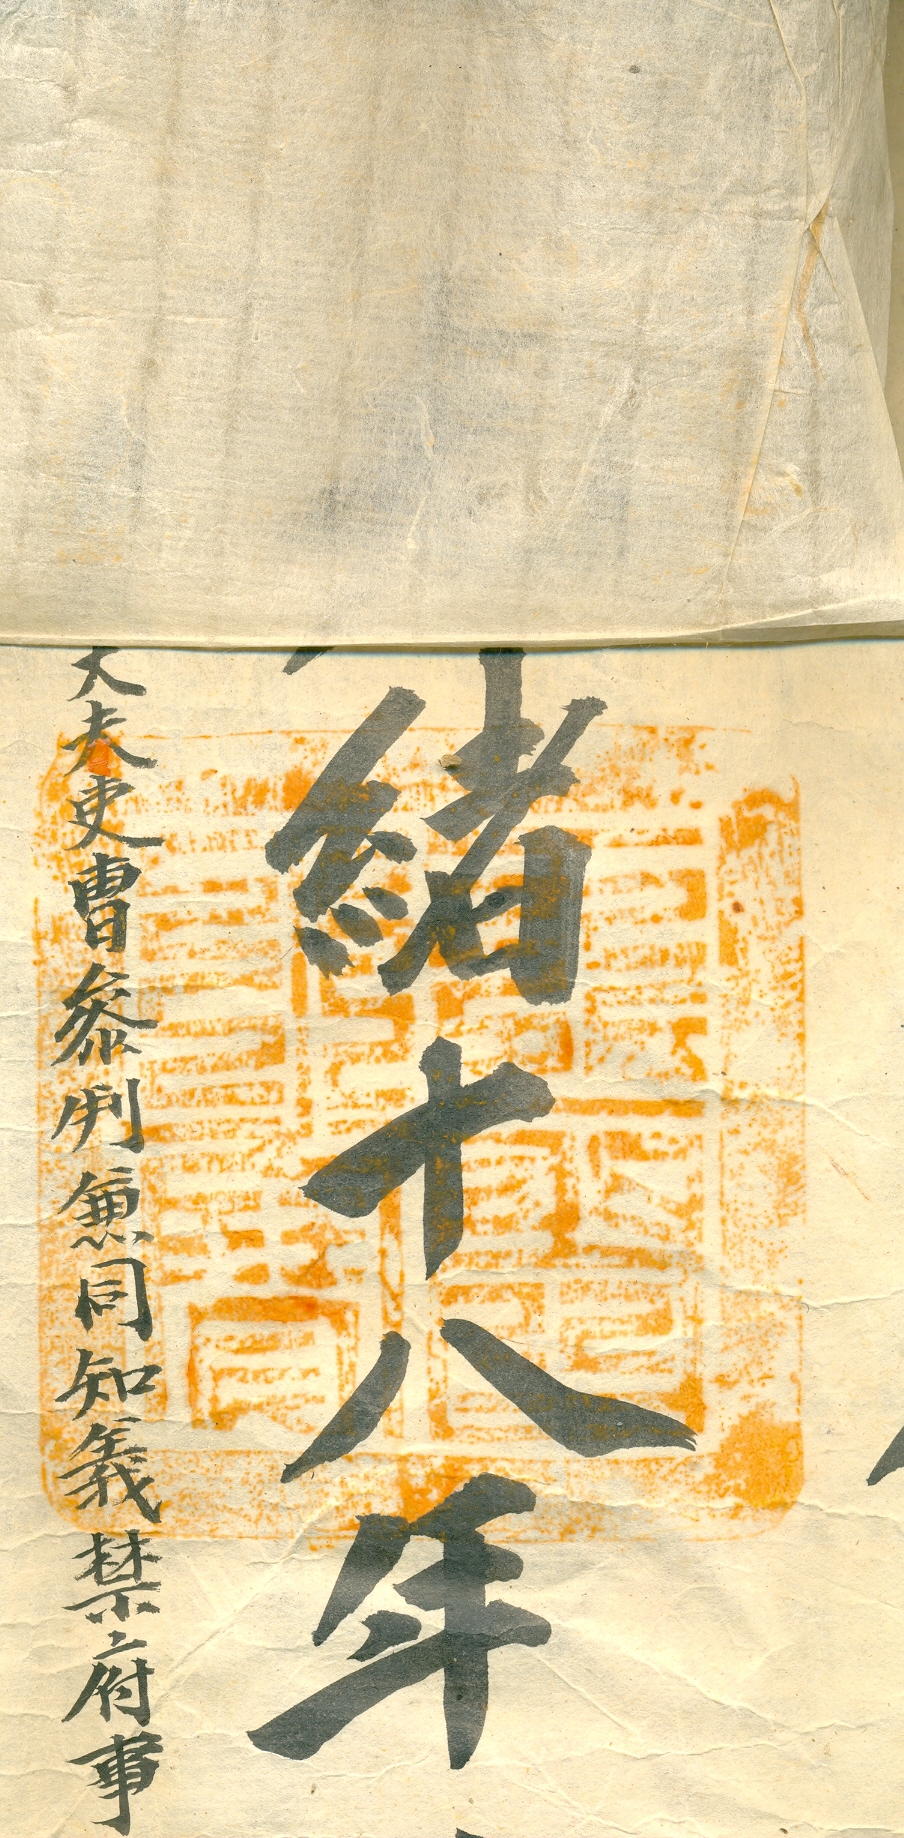 緒十八年
大夫吏曹參判兼同知義禁府事